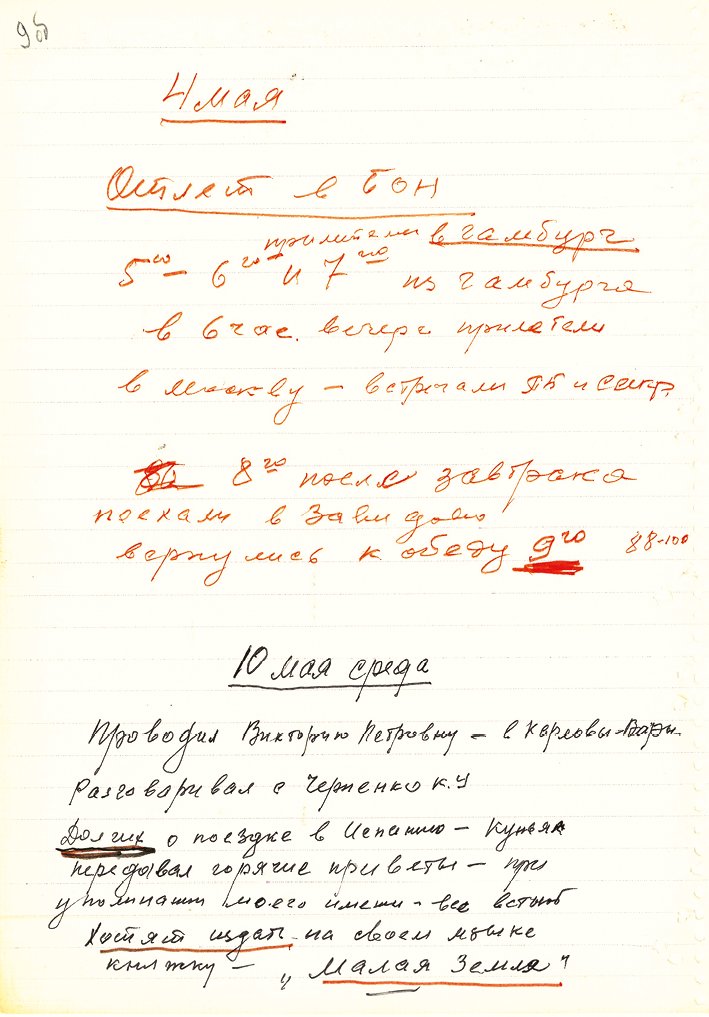 95
4 мая
Отлет в Бон
прилетели в Гамбург
5го – 6го и 7го из Гамбурга
в 6 час. вечера прилетели
в Москву – встречали ПБ и секр.
8го после завтрака
поехали в Завидово
вернулись к обеду 9го 88-100
10 мая среда
Проводил Викторию Петровну – в Карловы-Вары
Разговаривал с Черненко К.У
Долгих о поездке в Испанию –
передавал горячие приветы – при
упоминании моего имени – все встают
Хотят издать на своем языке
книжку –
„Малая Земля"